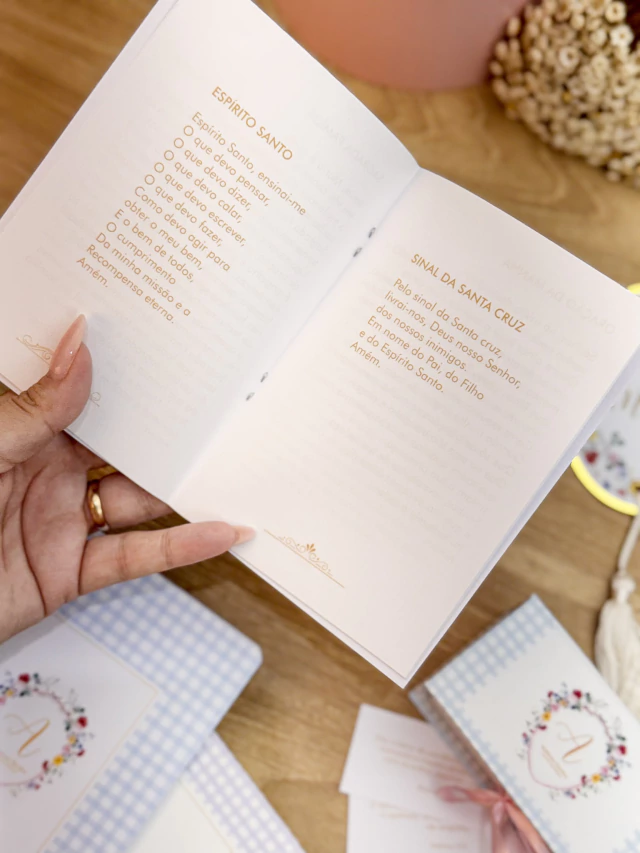 ESPÍRITO SANTO
Espírito Santo, ensinai-me
O que devo pensar,
O que devo dizer,
O que devo calar,
O que devo escrever,
O que devo fazer,
Como devo agir para
obter o meu bem,
E o bem de todos,
O cumprimento
Da minha missão e a
Recompensa eterna.
Amém.
SINAL DA SANTA CRUZ
Pelo sinal da Santa cruz,
livrai-nós, Deus nosso Senhor,
dos nossos inimigos.
Em nome do Pai, do Filho
e do Espírito Santo.
Amém.
A
A